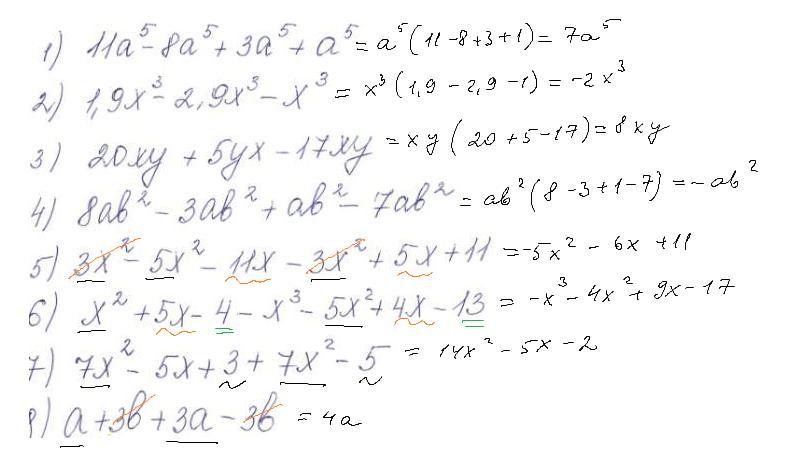 1) 11a⁵ - 8a⁵ + 3a⁵ + a⁵ = a⁵ (11 - 8 + 3 + 1) = 7a⁵
2) 1,9x³ - 2,9x³ - x³ = x³ (1,9 - 2,9 - 1) = -2x³
3) 20xy + 5yx - 17xy = xy (20 + 5 - 17) = 8xy
4) 8ab² - 3ab² + ab² - 7ab² = ab² (8 - 3 + 1 - 7) = -ab²
5) 3x² - 5x² - 11x - 3x² + 5x + 11 = -5x² - 6x + 11
6) x² + 5x - 4 - x³ - 5x² + 4x - 13 = -x³ - 4x² + 9x - 17
7) 7x² - 5x + 3 + 7x² - 5 = 14x² - 5x - 2
8) a + 3b + 3a - 3b = 4a